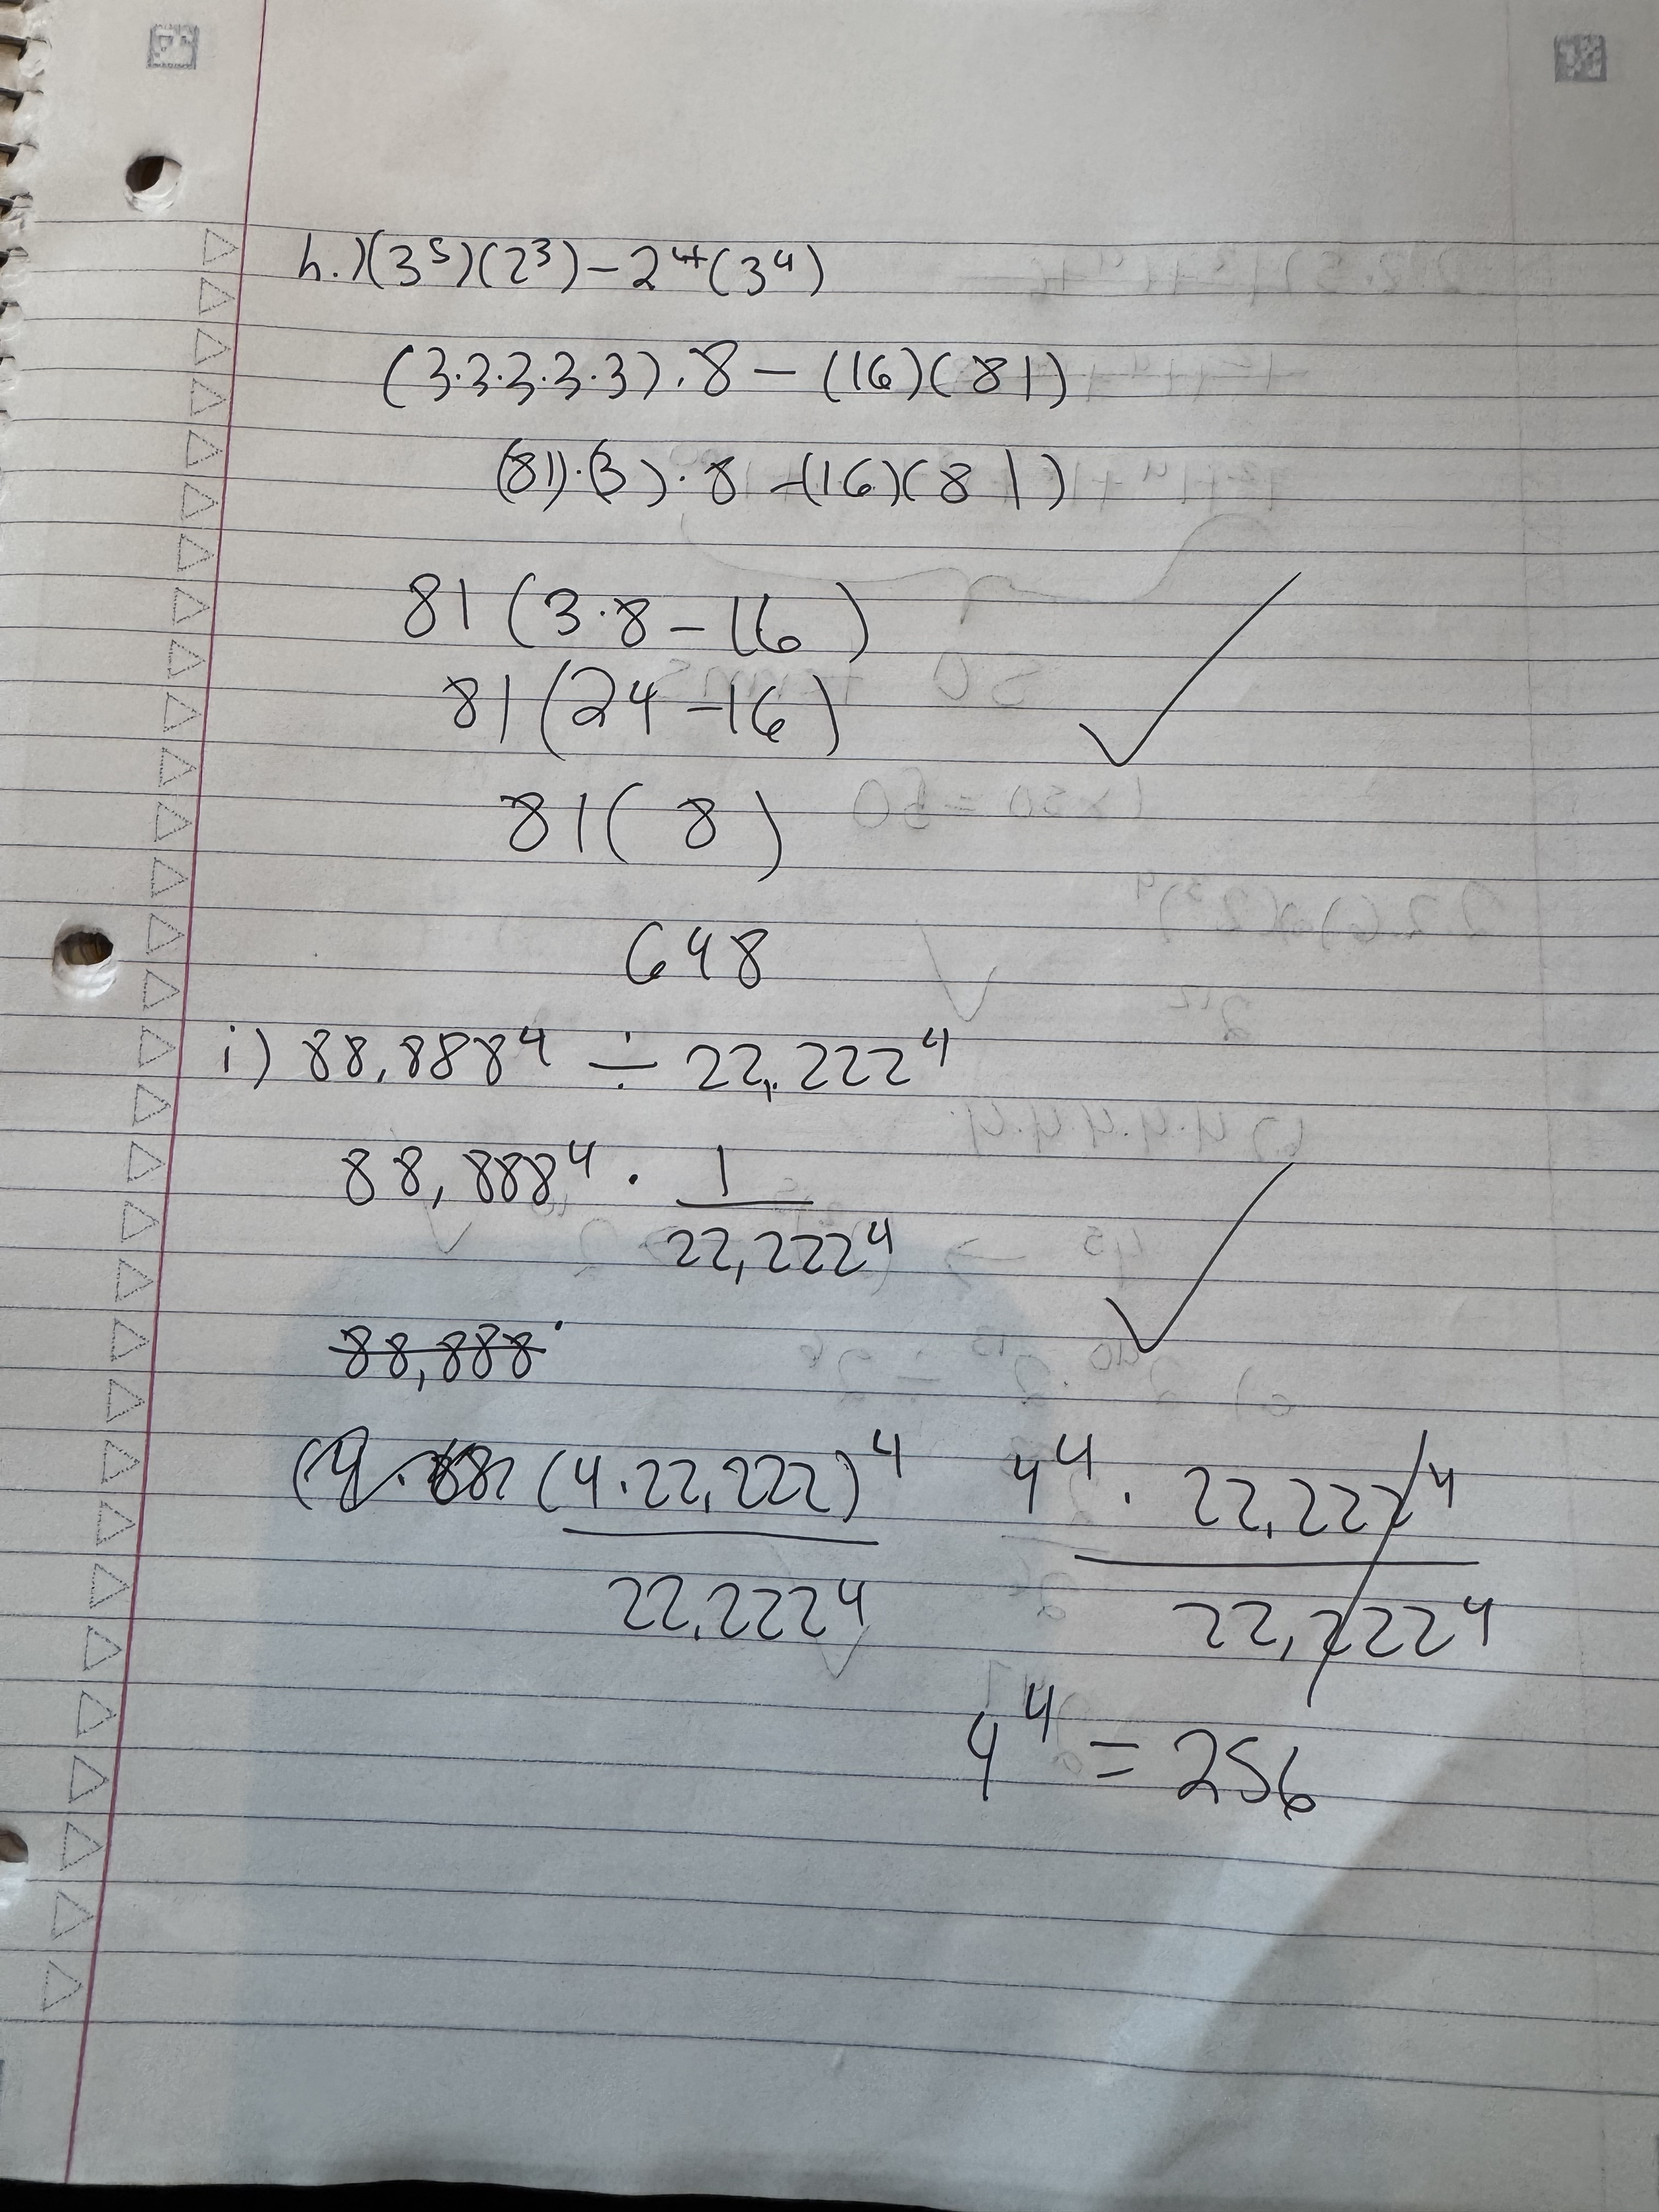 h.)(3⁵)(2³)-2⁴(3⁴)
(3·3·3·3·3)·8-(16)(81)
(81)·(3)·8-(16)(81)
81(3·8-16)
81(24-16)
81(8)
648
i) 88,888⁴ ÷ 22,222⁴
88,888⁴ · 1/22,222⁴
88,888·
(4·22,222)⁴/22,222⁴ 4⁴ · 22,222⁴/22,222⁴
4⁴ = 256